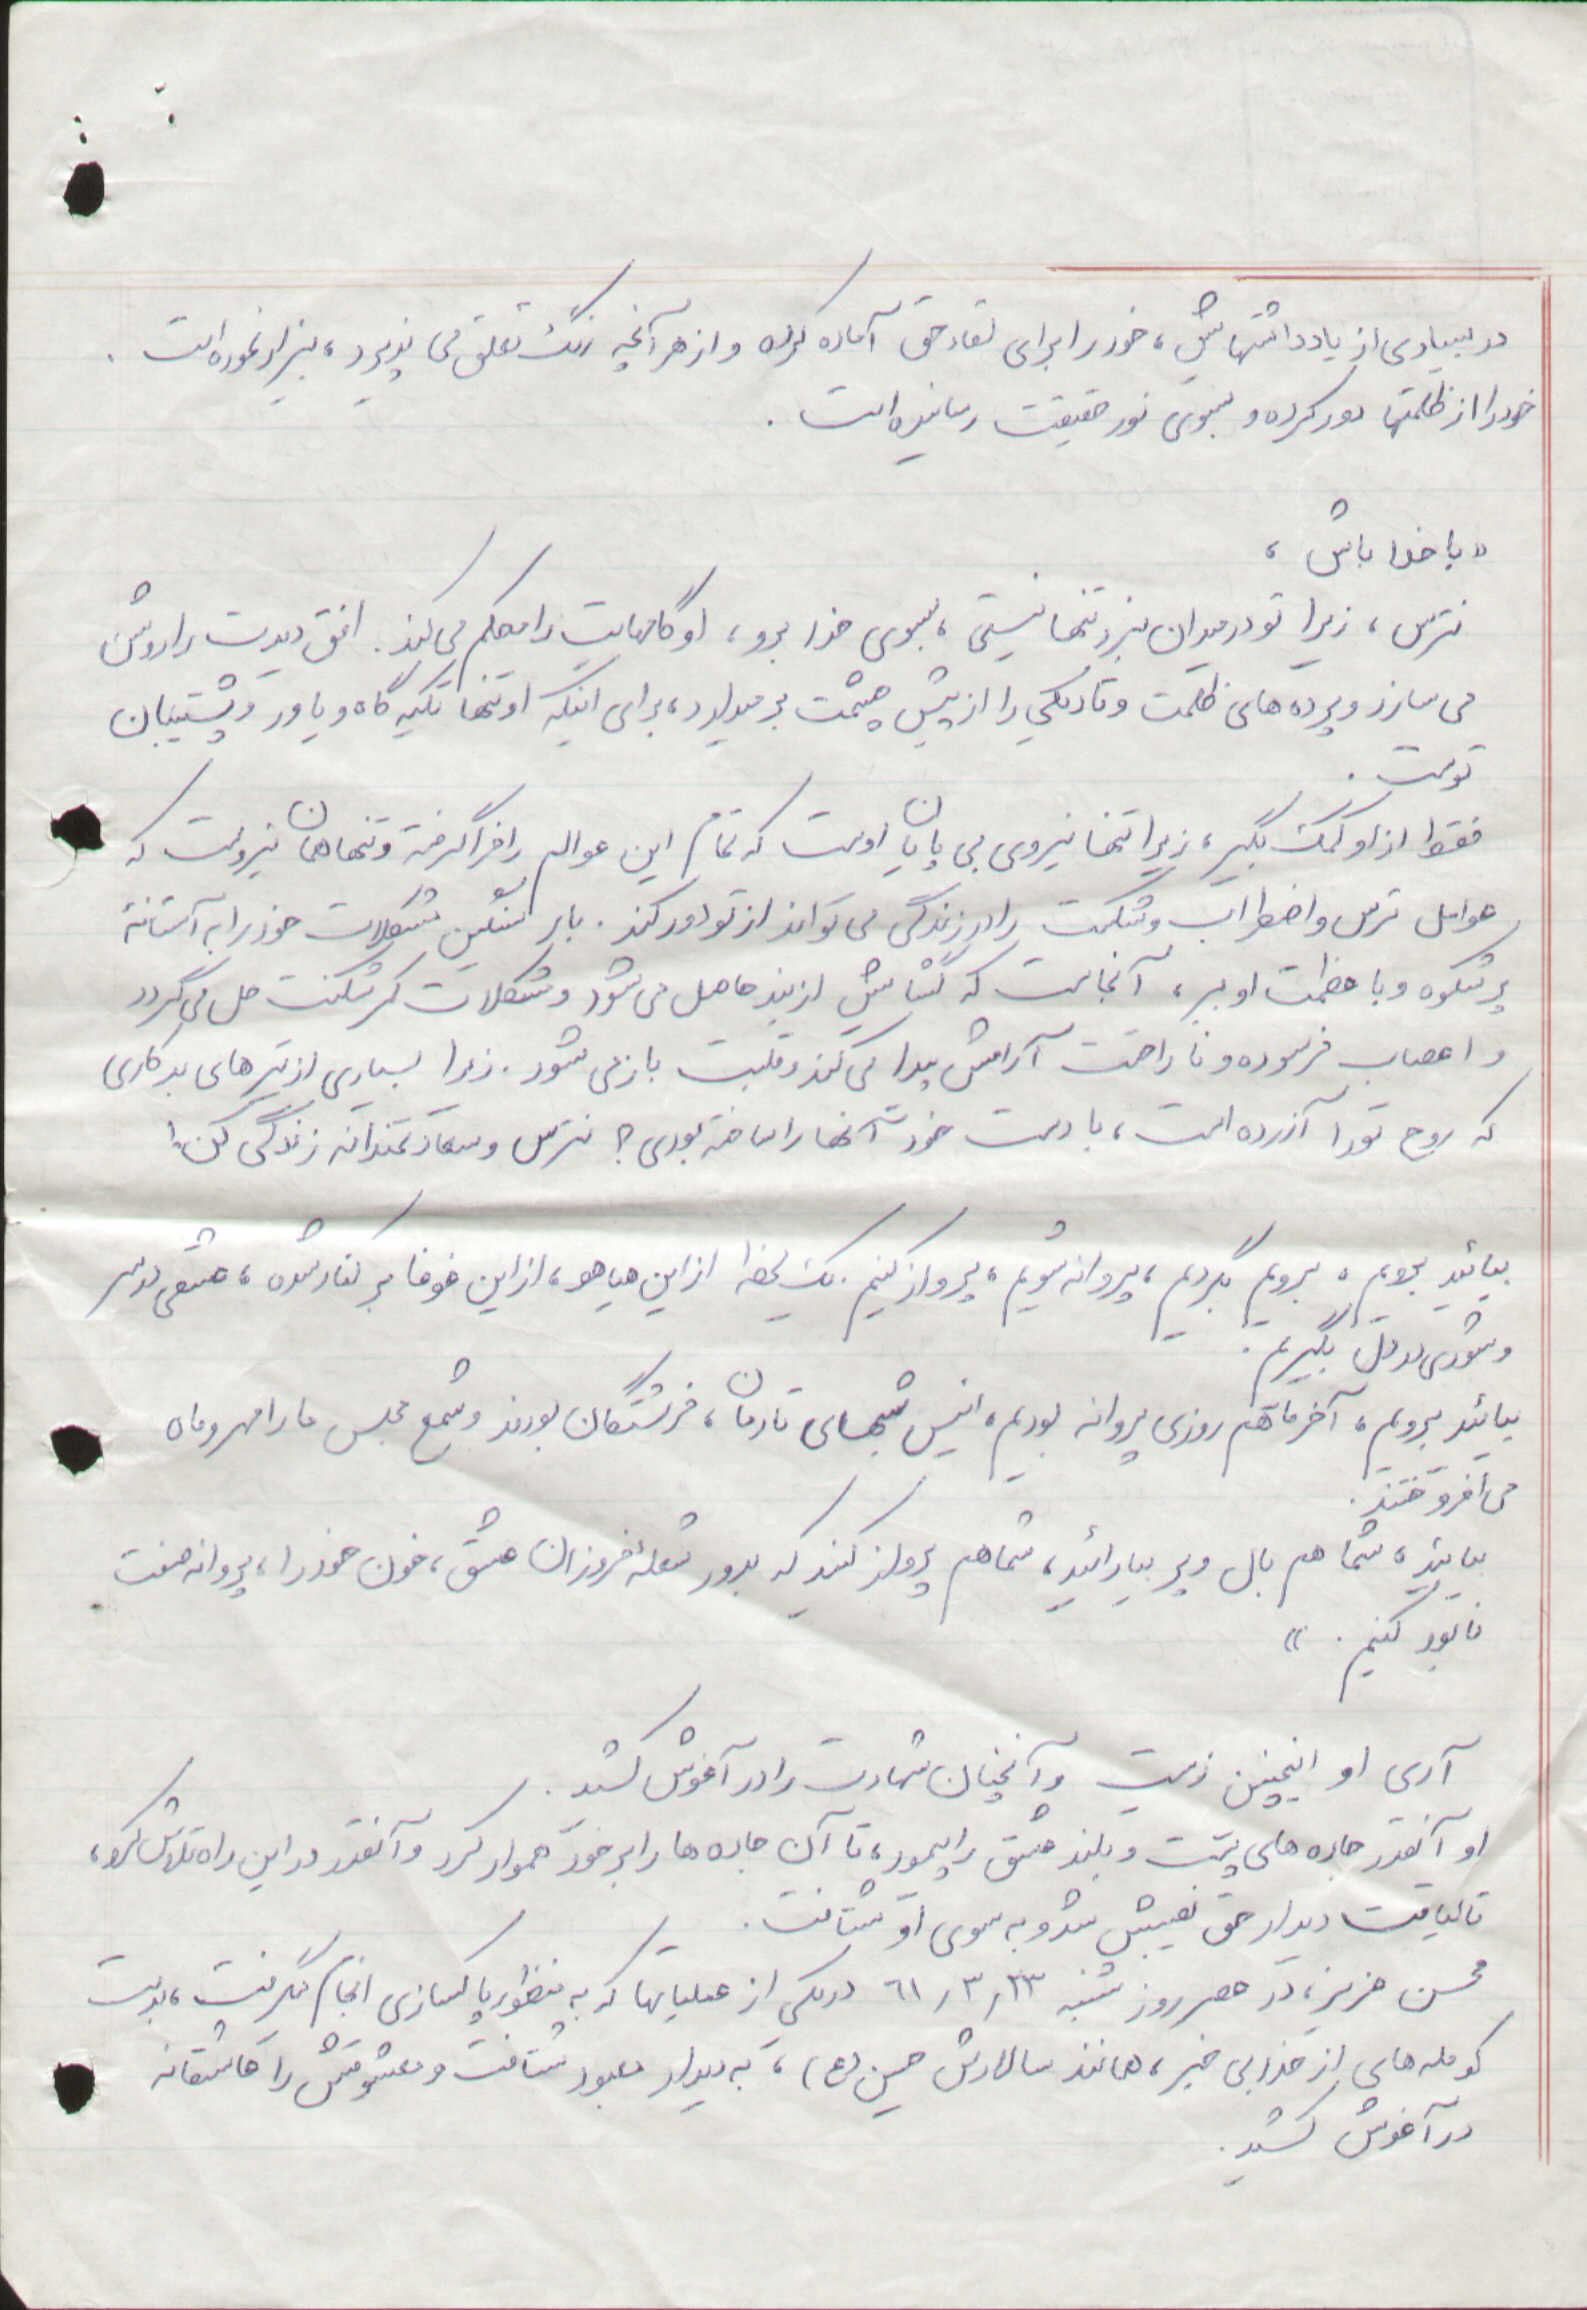 در بسیاری از یادداشتهایش، خود را برای لقاء حق آماده کرده و از هر آنچه رنگ تعلق می پذیرد، بیزار نموده است.
خود را از ظلمتها دور کرده و بسوی نور حقیقت رسانیده است.
« با خدا باش ،
نترس ، زیرا تو در میدان نبرد تنها نیستی ، بسوی خدا برو ، او گامهایت را محکم می کند . افق دیدت را روشن
می سازد و پرده های ظلمت و تاریکی را از پیش چشمت بر میدارد ، برای اینکه او تنها تکیه گاه و یاور و پشتیبان
توست .
فقط از او کمک بگیر ، زیرا تنها نیروی بی پایان اوست که تمام این عوالم را فرا گرفته و تنها همان نیروست که
عوامل ترس و اضطراب و شکست را در زندگی می تواند از تو دور کند . بار سنگین مشکلات خود را به آستانهٔ
پر شکوه و با عظمت او ببر ، آنجاست که گشایش از بند حاصل می شود و مشکلات کمرشکنت حل می گردد
و اعصاب فرسوده و ناراحتت آرامش پیدا می کند و قلبت باز می شود . زیرا بسیاری از تیرهای بدکاری
که روح تو را آزرده است ، با دست خودت آنها را ساخته بودی ؟ نترس و سعادتمندانه زندگی کن !
بیائید برویم ، برویم بگردیم ، پروانه شویم ، پرواز کنیم . یک لحظه از این هیاهو ، از این غوغا بر کنار شده ، عشقی در سر
و شوری در دل بگیریم .
بیائید برویم ، آخر ما هم روزی پروانه بودیم ، انیس شبهای تارمان ، فرشتگان بودند و شمع مجلس ما را مهر و ماه
می افروختند .
بیائید ، شما هم بال و پر بیارائید ، شما هم پرواز کنید که بدور شعلهٔ فروزان عشق ، خون خود را ، پروانه صفت
نابود کنیم . »
آری او اینچنین زیست و آنچنان شهادت را در آغوش کشید .
او آنقدر جاده های پست و بلند عشق را پیمود ، تا آن جاده ها را بر خود هموار کرد و آنقدر در این راه تلاش کرد ،
تا لیاقت دیدار حق نصیبش شد و به سوی او شتافت .
محسن عزیز ، در عصر روز شنبه ٦١/٣/٢٣ در یکی از عملیاتها که به منظور پاکسازی انجام میگرفت ، بدست
کومله های از خدا بی خبر ، همانند سالارش حسین (ع) ، به دیدار معبود شتافت و معشوقش را عاشقانه
در آغوش کشید .